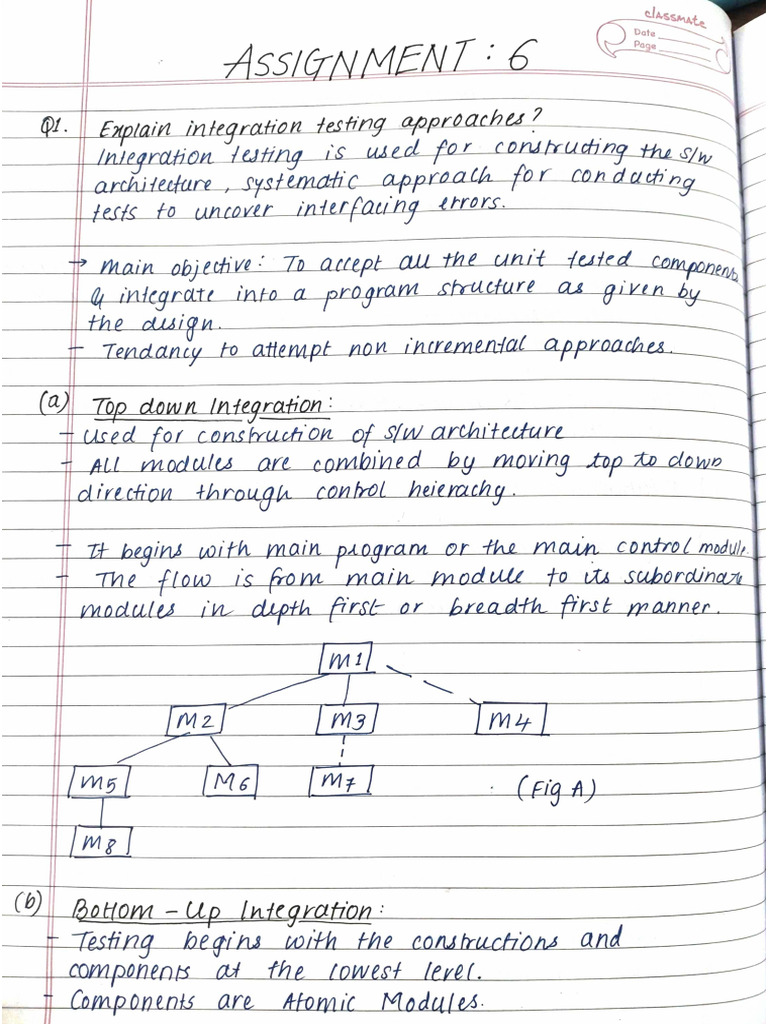 classmate
Date
Page
ASSIGNMENT : 6
Q1. Explain integration testing approaches?
Integration testing is used for constructing the S/W
architecture, systematic approach for conducting
tests to uncover interfacing errors.
→ Main objective: To accept all the unit tested components
& integrate into a program structure as given by
the design.
- Tendancy to attempt non incremental approaches.
(a) Top down Integration:
- Used for construction of S/W architecture
- All modules are combined by moving top to down
direction through control heierachy.
- It begins with main program or the main control module.
- The flow is from main module to its subordinate
modules in depth first or breadth first manner.
M1
M2 M3 M4
M5 M6 M7 (Fig A)
M8
(b) Bottom - Up Integration:
- Testing begins with the constructions and
components at the lowest level.
- Components are Atomic Modules.